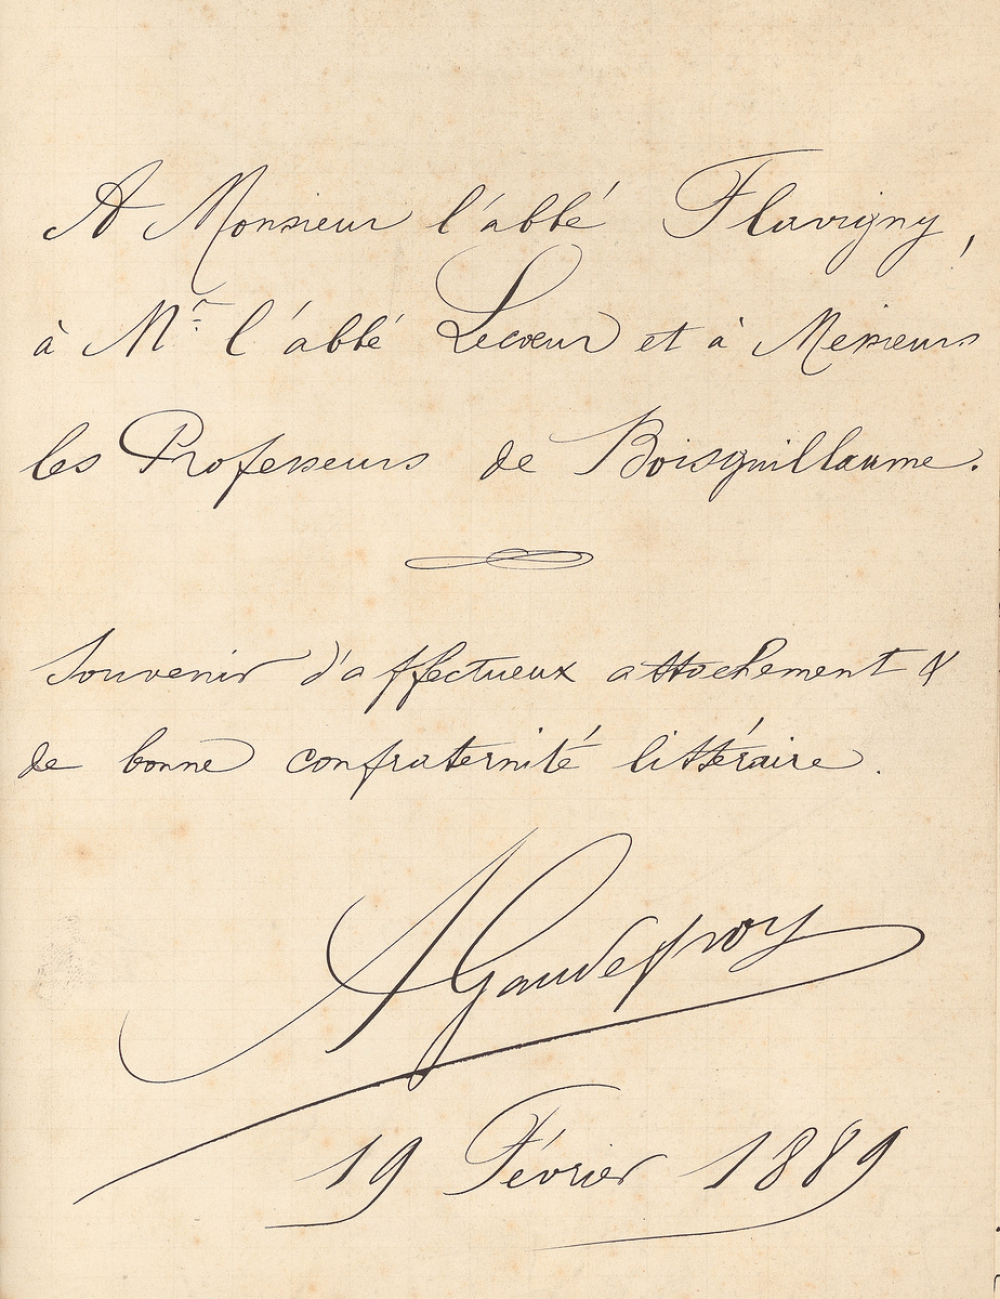 A Monsieur l'abbé Flavigny,
à Mr l'abbé Lecœur et à Messieurs
les Professeurs de Boisguillaume.
Souvenir d'affectueux attachement &
de bonne confraternité littéraire.
A Gaudefroy
19 Février 1889